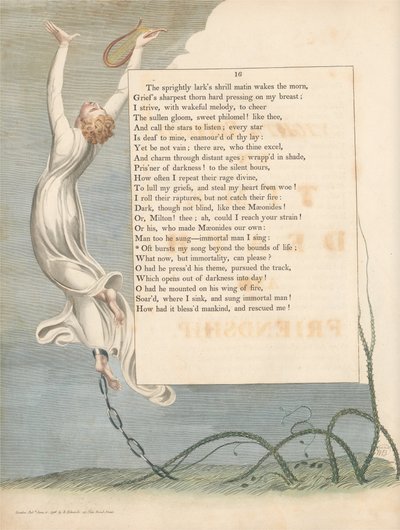 16
The sprightly lark's shrill matin wakes the morn,
Grief's sharpest thorn hard pressing on my breast;
I strive, with wakeful melody, to cheer
The sullen gloom, sweet philomel! like thee,
And call the stars to listen; every star
Is deaf to mine, enamour'd of thy lay:
Yet be not vain; there are, who thine excel,
And charm through distant ages; wrapp'd in shade,
Pris'ner of darkness! to the silent hours,
How often I repeat their rage divine,
To lull my griefs, and steal my heart from woe!
I roll their raptures, but not catch their fire:
Dark, though not blind, like thee Mæonides!
Or, Milton! thee; ah, could I reach your strain!
Or his, who made Mæonides our own:
Man too he sung—immortal man I sing:
* Oft bursts my song beyond the bounds of life;
What now, but immortality, can please?
O had he press'd his theme, pursued the track,
Which opens out of darkness into day!
O had he mounted on his wing of fire,
Soar'd, where I sink, and sung immortal man!
How had it bless'd mankind, and rescued me!